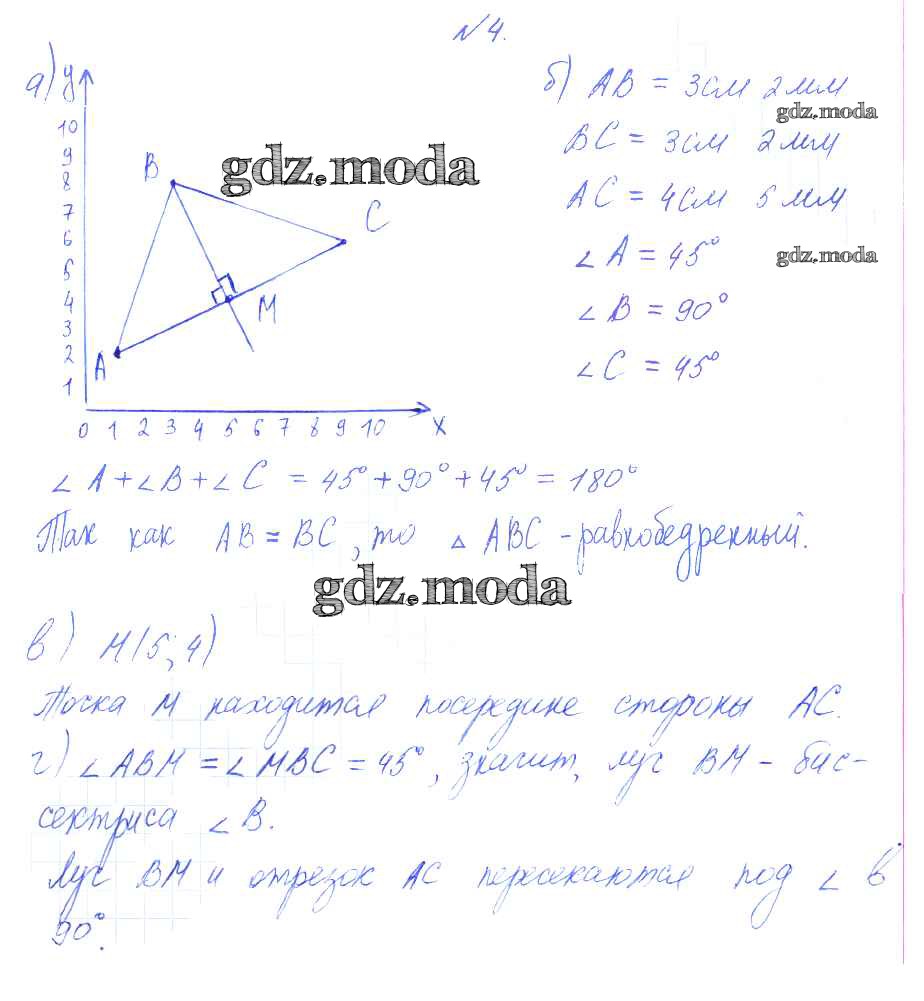 №4.
а) y
10
9
8
7
6
5
4
3
2
1
B
C
M
A
0 1 2 3 4 5 6 7 8 9 10 x
gdz.moda
б) AB = 3см 2мм
gdz.moda
BC = 3см 2мм
AC = 4см 5мм
∠A = 45°
gdz.moda
∠B = 90°
∠C = 45°
∠A+∠B+∠C = 45°+90°+45° = 180°
Так как AB = BC, то △ ABC - равнобедренный.
gdz.moda
в) M(5; 4)
Точка M находится посередине стороны AC.
г) ∠ABM = ∠MBC = 45°, значит, луч BM - бис-
сектриса ∠B.
Луч BM и отрезок AC пересекаются под ∠ в
90°.